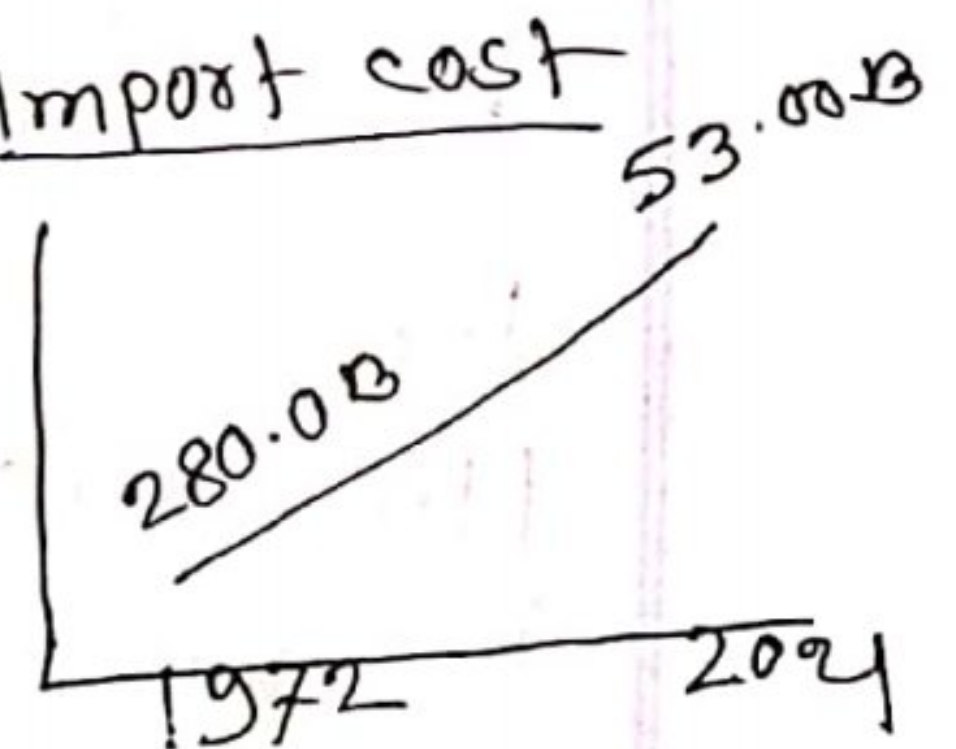 Import cost
53.00B
280.0B
1972
2021